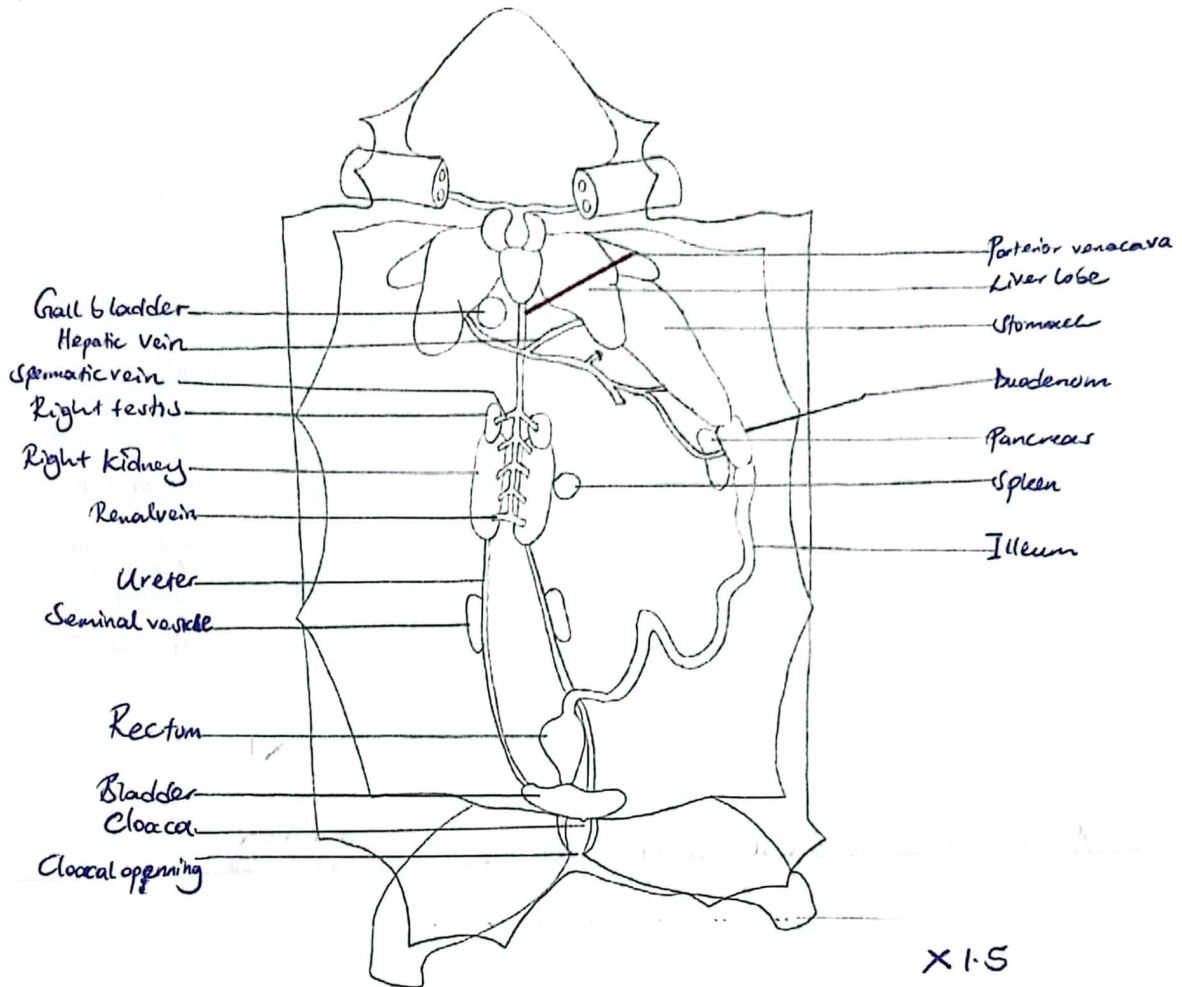 Gall bladder
Hepatic vein
Spermatic vein
Right testis
Right Kidney
Renal vein
Ureter
Seminal vesicle
Rectum
Bladder
Cloaca
Cloacal openning
Posterior venacava
Liver lobe
Stomach
Duodenum
Pancreas
Spleen
Illeum
X 1.5